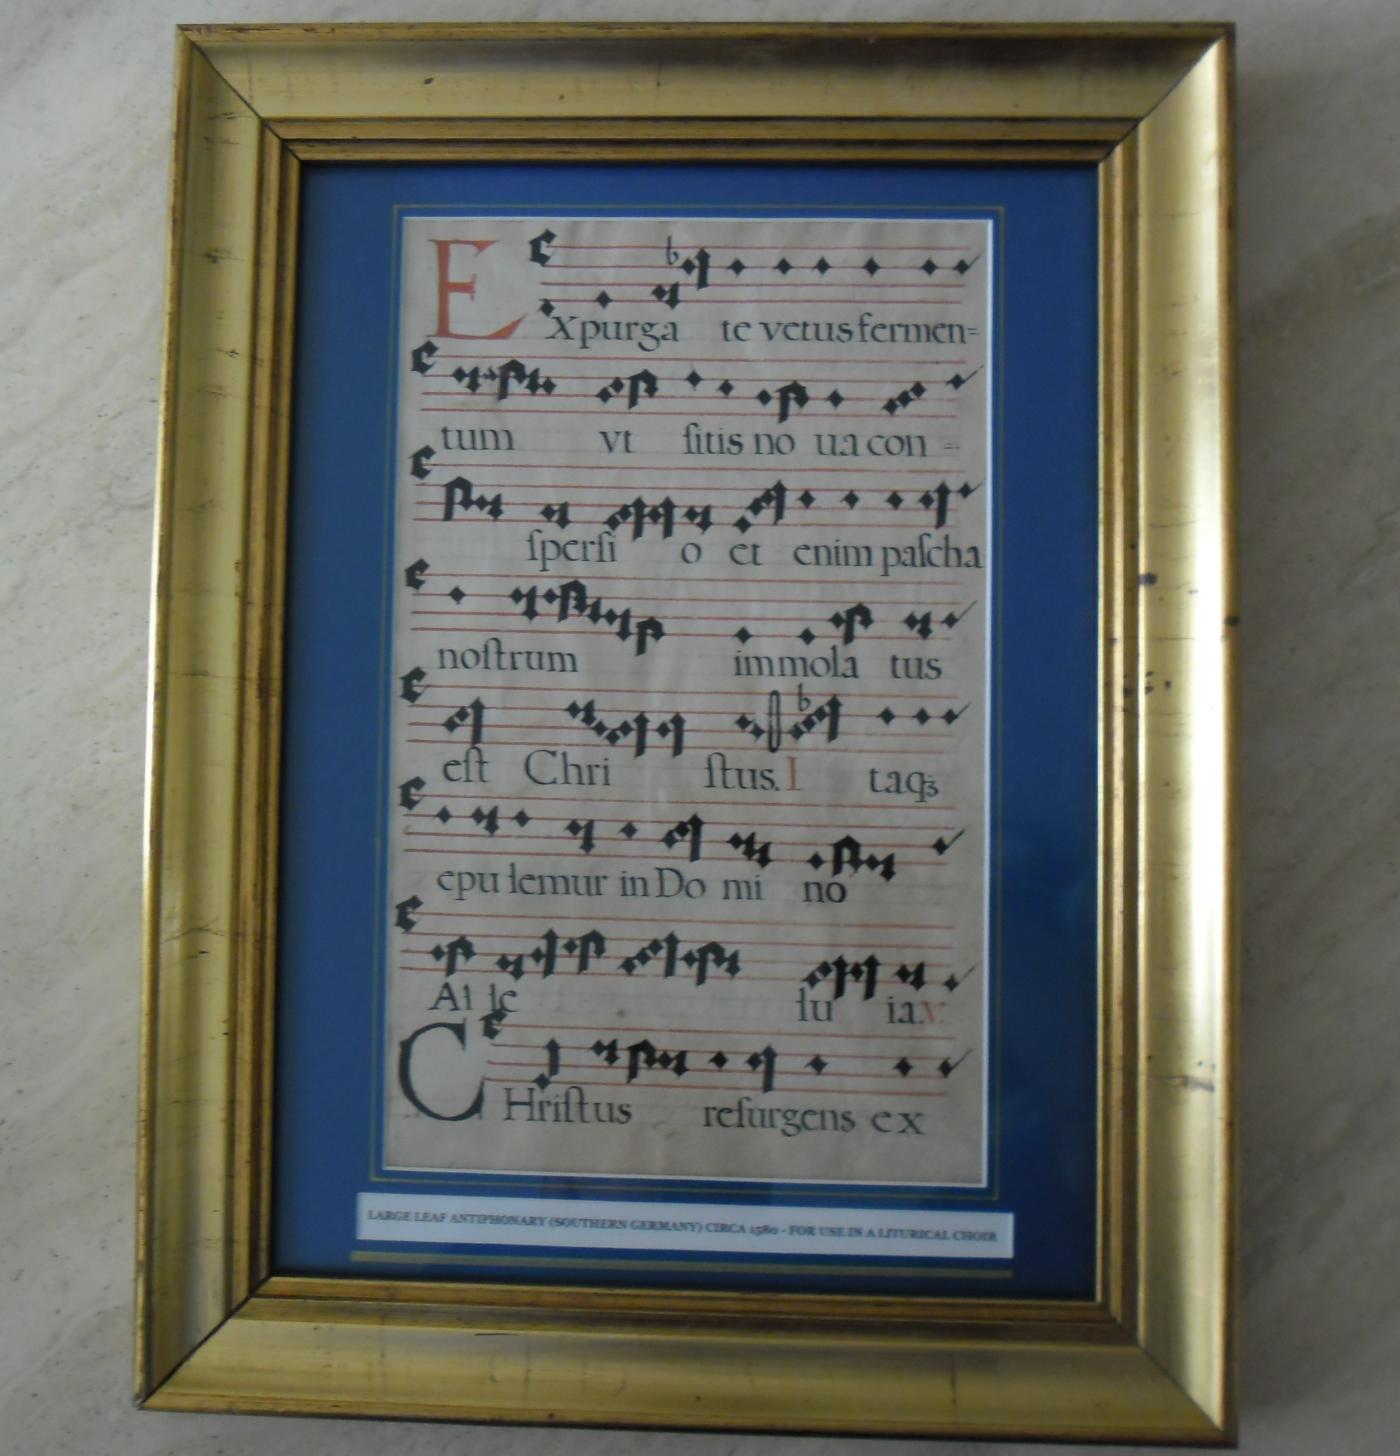 b
EXpurga te vetus fermen=
tum vt ſitis no ua con =
ſperſi o et enim paſcha
noſtrum immola tus
b
eſt Chri ſtus. I taqꝫ
epu lemur in Do mi no
Al le lu ia. v.
CHriſtus reſurgens ex
LARGE LEAF ANTIPHONARY (SOUTHERN GERMANY) CIRCA 1580 - FOR USE IN A LITURICAL CHOIR